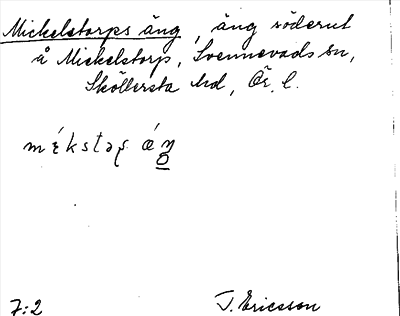 Mickelstorps äng, äng söderut
å Mickelstorp, Svennevads sn,
Sköllersta hd, Ör. l.
7:2 J. Ericsson